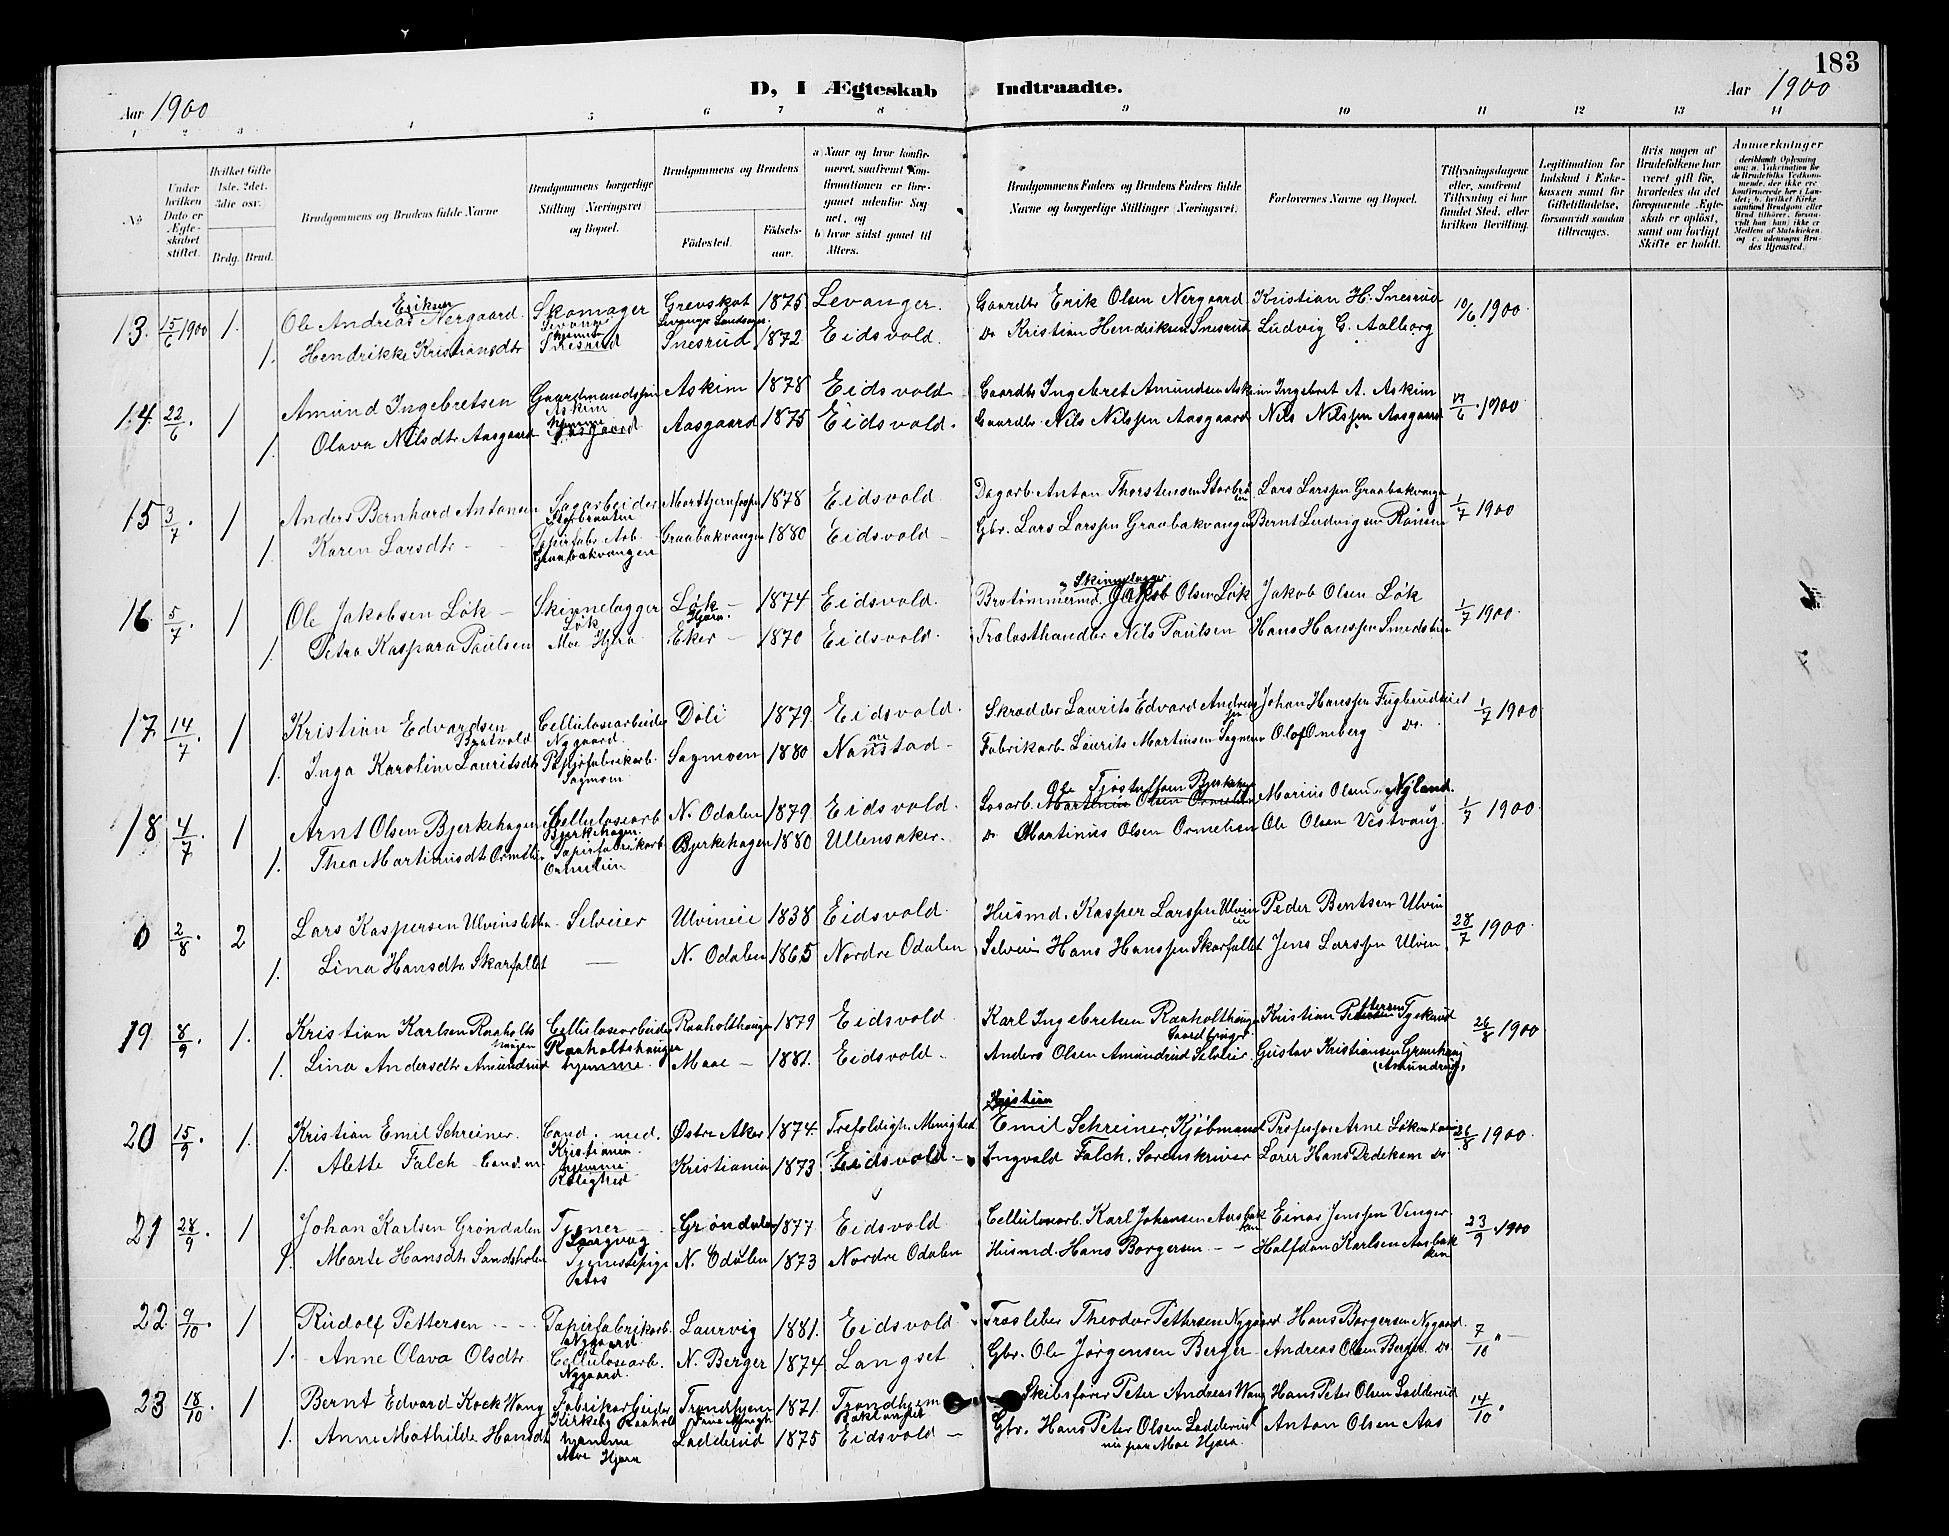 183
D, I Ægteskab Indtraadte.
Aar 1900
Aar 1900
1 2 3 4 5 6 7 8 9 10 11 12 13 14
No
Under hvilken Dato er Ægteskabet stiftet.
Hvilket Gifte 1ste, 2det, 3die osv.
Brdg. Brud.
Brudgommens og Brudens fulde Navne
Brudgommens borgerlige Stilling Næringsvei og Bopæl.
Brudgommens og Brudens
Fødested.
Fødselsaar.
a Naar og hvor konfirmeret, saafremt Konfirmationen er foregaaet udenfor Sognet, og
b hvor sidst gaaet til Alters.
Brudgommens Faders og Brudens Faders fulde Navne og borgerlige Stillinger (Næringsvei.
Forlovernes Navne og Bopæl.
Tillysningsdagene eller, saafremt Tillysning ei har fundet Sted, efter hvilken Bevilling.
Legitimation for Indskud i Enkekassen samt for Giftetilladelse, forsaavidt saadan tiltrænges.
Hvis nogen af Brudefolkene har været gift før, hvorledes da det foregaaende Ægteskab er opløst, samt om lovligt Skifte er holdt.
Anmærkninger
13. 15/6 1900 1. Ole Andreas Eriksen Nergaard. Skomager Levanger Grevskot Levanger Landsogn 1875 Levanger. Gaardbr Erik Olsen Nergaard Kristian H. Snesrud 10/6 1900
1. Hendrikke Kristiansdtr hjemme Snesrud Snesrud 1872 Eidsvold. Do Kristian Hendriksen Snesrud Ludvig C. Aalborg
14. 22/6. 1 Amund Ingebretsen Gaardmandssøn Askim Askim 1878 Eidsvold Gaardbr Ingebret Amundsen Askim Ingebret A. Askim 17/6. 1900
1. Olava Nilsdtr Aasgaard hjemme Aasgaard Aasgaard 1875 Eidsvold. Gaardbr. Nils Nilssen Aasgaard Nils Nilssen Aasgaard
15 3/7. 1 Anders Bernhard Antonsen Sagarbeider Storbraaten 1878 Eidsvold Dagarb. Anton Thorstensen Lars Larssen Graabakvangen 1/7 1900
1. Karen Larsdtr Papirfabr. Arb. Graabakvangen Graabakvangen 1880 Eidsvold Gbr. Lars Larssen Graabakvangen Bernt Ludvigsen
16 5/7. 1 Ole Jakobsen Løk Skinnelægger Løk Løk 1874 Eidsvold. Skinnelægger Jakob Olsen Løk Jakob Olsen Løk 1/7 1900
1. Petra Kaspara Paulsen Moe Hjera Eker 1870 Eidsvold. Trælasthandler Nils Paulsen Hans Hanssen
17 14/7. 1 Kristian Edvardsen Bratvold Cellulosearbeider Nygaard Døli 1879. Eidsvold. Skrædder Laurits Edvard Andersen Johan Hanssen 1/7 1900
1. Inga Karoline Lauritsdtr Papirfabrikarb. Sagmoen Sagmoen 1880 Nannestad Fabrikarb Laurits Martinsen Sagmoen Olaf Omberg Do.
18 4/7. 1 Arnt Olsen Bjerkehagen Cellulosearb Bjerkehagen N. Odalen 1879 Eidsvold. Løsarb. Ole Marius Olsen Nyland 1/7 1900
1. Thea Martinusdtr Papirfabrikarb Ormelien Bjerkehagen 1880 Ullensaker. Do Martinus Olsen Ormelien Ole Olsen Vestvang.
0 2/8. 2 Lars Kaspersen Ulvinsletta Selveier Ulvineie 1838 Eidsvold. Husmd. Kasper Larssen Peder Berntsen Ulvin 28/7 1900
1. Lina Hansdtr Skarfallet — N. Odalen 1865 Nordre Odalen Selveier Hans Hanssen Skarfallet Jens Larssen Ulvin
19 8/9. 1. Kristian Karlsen Raaholts haugen Cellulosearbeider Raaholtshaugen Raaholthaugen 1879 Eidsvold Karl Ingebretsen Raaholthaugen Kristian Pettersen 26/8 1900
1. Lina Andersdtr Amundrud hjemme. Maae 1881. Eidsvold. Anders Olsen Amundrud Selveier Gustav Kristiansen (Amundrud).
20 15/9. 1. Kristian Emil Schreiner. Cand. med. Kristiania Østre Aker 1874. Trefoldigh. Menighed Kristian Emil Schreiner, Kjøbmand Professor Arne Løken 26/8 1900
1. Alette Falch Cand. m hjemme Rolighed Kristiania 1873. Eidsvold. Ingvald Falch. Sorenskriver Hans Dedekam Do
21 28/9. 1 Johan Karlsen Grøndalen Tjener Grøndalen 1877 Eidsvold Cellulosearb. Karl Johansen Aasbakken Einar Jenssen Venger. 23/9 1900
1. Marte Hansdtr Tjenestepige Aas N. Odalen 1873 Nordre Odalen Husmd. Hans Borgersen Halfdan Karlsen Aasbakken
22 9/10. 1 Rudolf Pettersen Papirfabrikarb. Nygaard Laurvig 1881. Eidsvold Træsliber Theodor Pettersen Nygaard Hans Borgersen Nygaard 7/10 "
1. Anne Olava Olsdtr Cellulosearb. Nygaard. N. Berger 1874 Langset Gbr. Ole Jørgensen Berger Andreas Olsen Berger Do
23 18/10. 1 Bernt Edvard Kock Wang Fabrikarbeider Kirkeby Raaholt Trondhjem 1871. Trondhjem Skibsfører Peter Andreas Wang Hans Peter Olsen Ladderud 14/10 "
1. Anne Mathilde Hansdtr hjemme Moe Hjera Ladderud 1875 Eidsvold Gbr. Hans Peter Olsen Ladderud nu paa Moe Hjera. Anton Olsen Aas